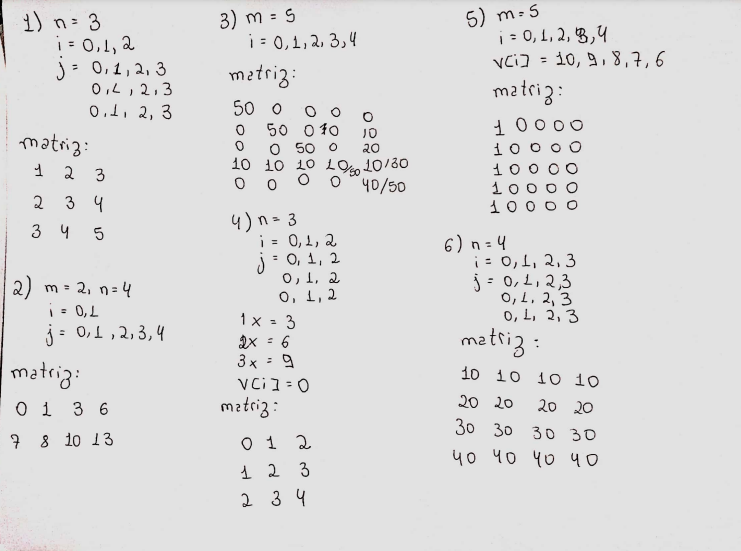 1) n = 3
i = 0,1,2
j = 0,1,2,3
0,1,2,3
0,1,2,3
matriz:
1 2 3
2 3 4
3 4 5
2) m = 2, n = 4
i = 0,1
j = 0,1,2,3,4
matriz:
0 1 3 6
7 8 10 13
3) m = 5
i = 0,1,2,3,4
matriz:
50 0 0 0 0
0 50 0 10 10
0 0 50 0 20
10 10 10 10/50 10/30
0 0 0 0 40/50
4) n = 3
i = 0,1,2
j = 0,1,2
0,1,2
0,1,2
1x = 3
2x = 6
3x = 9
v[i] = 0
matriz:
0 1 2
1 2 3
2 3 4
5) m = 5
i = 0,1,2,3,4
v[i] = 10,9,8,7,6
matriz:
1 0 0 0 0
1 0 0 0 0
1 0 0 0 0
1 0 0 0 0
1 0 0 0 0
6) n = 4
i = 0,1,2,3
j = 0,1,2,3
0,1,2,3
0,1,2,3
matriz:
10 10 10 10
20 20 20 20
30 30 30 30
40 40 40 40